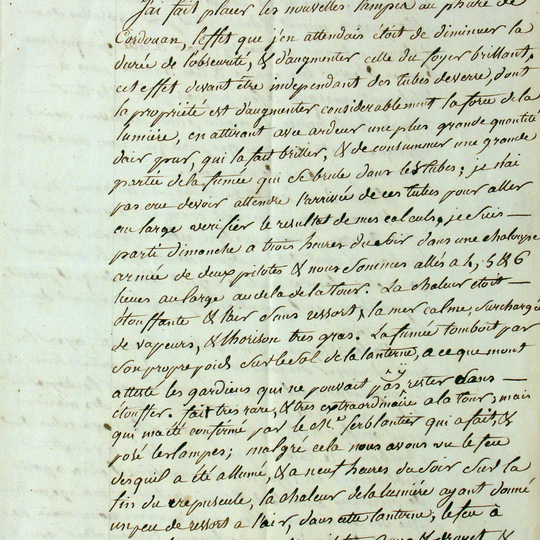 J'ai fait placer les nouvelles lampes au phare de
Cordouan, l'effet que j'en attendais étoit de diminuer la
durée de l'obscurité, & d'augmenter celle du foyer brillant,
cet effet devant être independant des tubes de verre, dont
la propriété est d'augmenter considerablement la force de la
lumiere, en attirant avec ardeur une plus grande quantité
d'air pour, qui la fait briller, & de consummer une grande
partie de la fumée qui se brule dans les tubes; je n'ai
pas cru devoir attendre l'arrivée de ces tubes pour aller
au large verifier le resultat de mes calculs, je suis —
parti dimanche a trois heures du soir dans une chaloupe
armée de deux pilotes & nous sommes allés a 4, 5 & 6
lieues au large au dela de la tour. La chaleur étoit —
étouffante & l'air sans ressort, la mer calme, surchargé
de vapeurs, & l'horison tres gras. La fumée tomboit par
son propre poids sur le sol de la lanterne, a ce que m'ont
attesté les gardiens qui ne pouvait pas y rester sans —
étouffer. fait tres rare, & tres extraordinaire a la tour, mais
qui m'a été confirmé par le Mr. ferblantier qui a fait &
posé les lampes; malgré cela nous avons vu le feu
des qu'il a été allumé, & a neuf heures du soir sur la
fin du crepuscule, la chaleur de la lumiere ayant donné
un peu de ressort a l'air, dans cette lanterne, le feu a